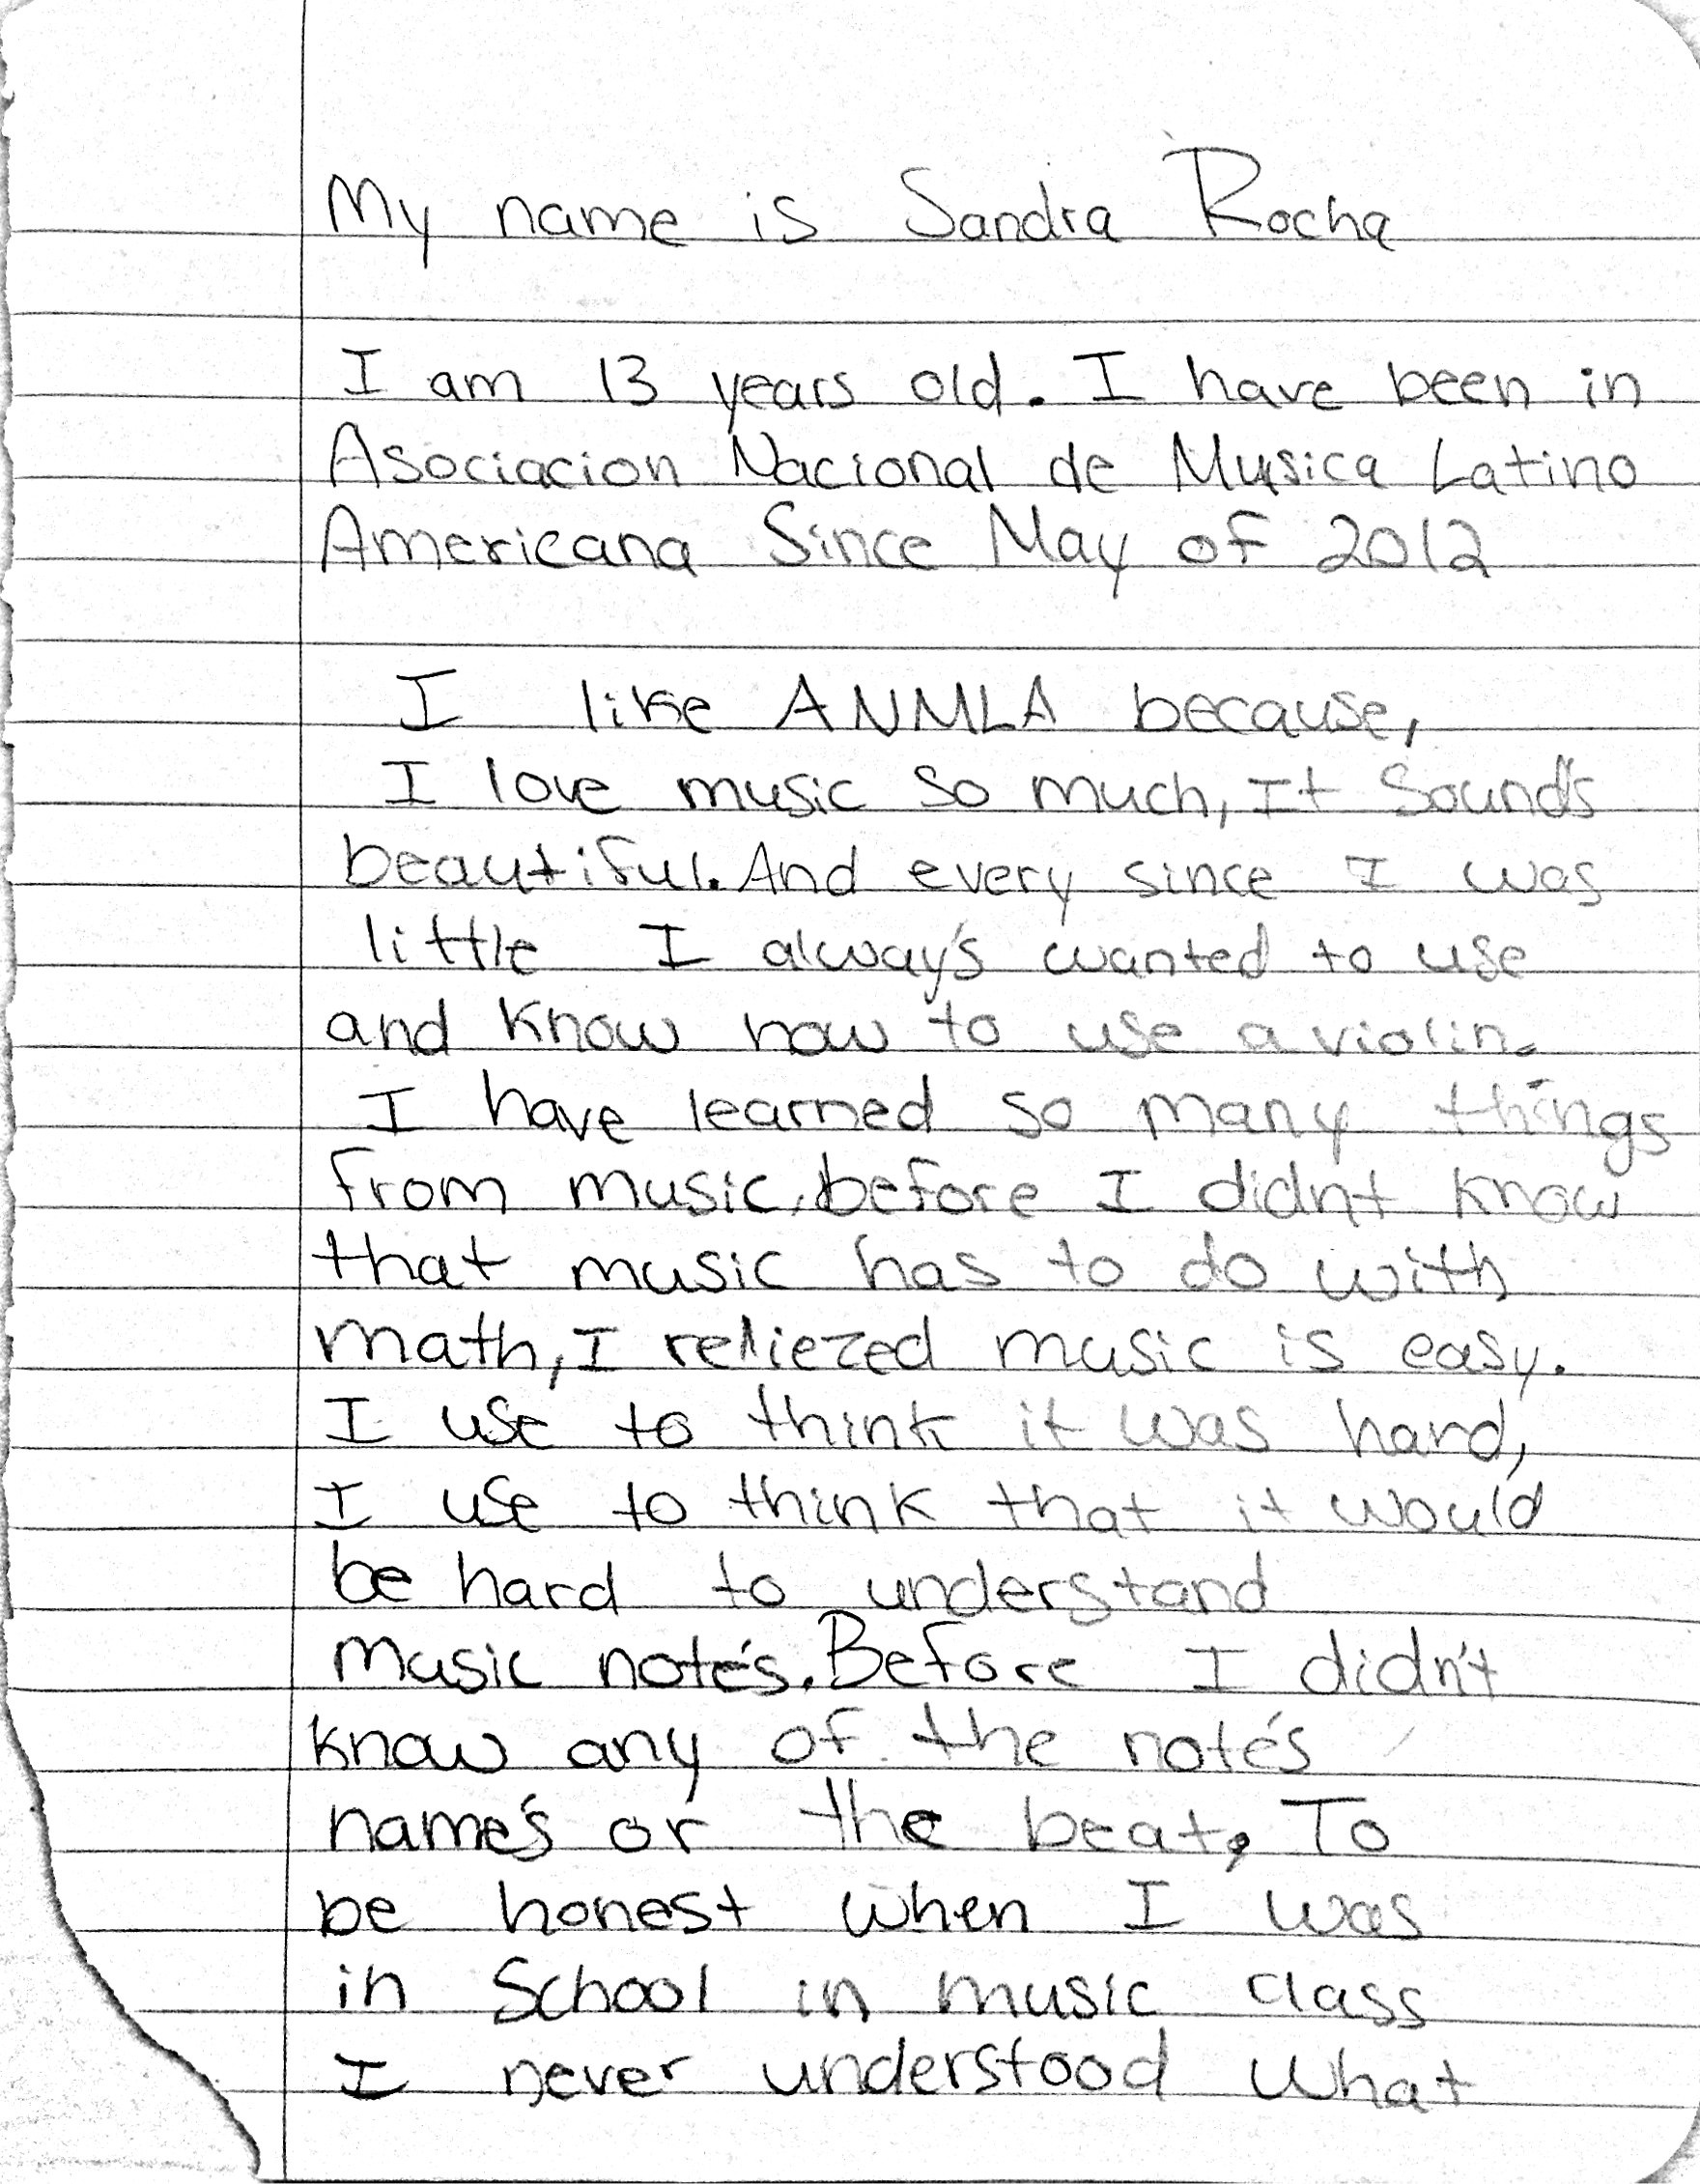 My name is Sandra Rocha
I am 13 years old. I have been in
Asociacion Nacional de Musica Latino
Americana Since May of 2012
I like ANMLA because,
I love music so much, It Sound's
beautiful. And every since I was
little I alway's wanted to use
and know how to use a violin.
I have learned so many things
from music, before I didnt know
that music has to do with
math, I reliezed music is easy.
I use to think it was hard,
I use to think that it would
be hard to understand
music note's. Before I didn't
know any of the note's
name's or the beat, To
be honest when I was
in School in music class
I never understood what